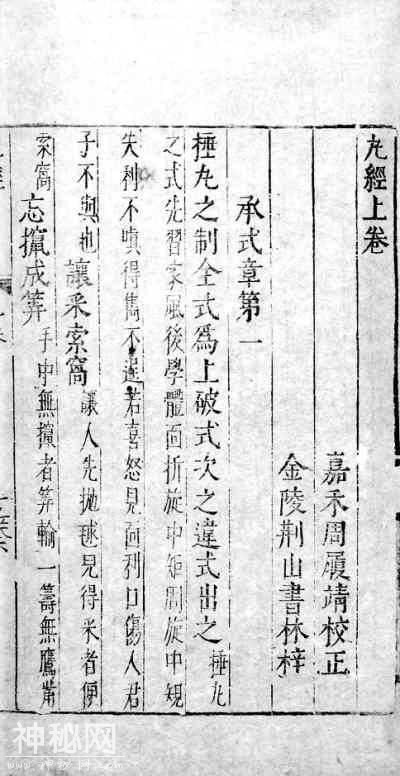 丸經上卷
嘉禾周履靖校正
金陵荆山書林梓
承式章第一
捶丸之制全式爲上破式次之違式出之捶丸
之式先習家風後學體面折旋中矩周旋中規
失利不嗔得雋不逞若喜怒見面利口傷人君
子不與也讓采索窩讓人先抛毬見得采者便
索窩忘撺成筭手中無撺者筭輸一籌無鷹觜
神秘网